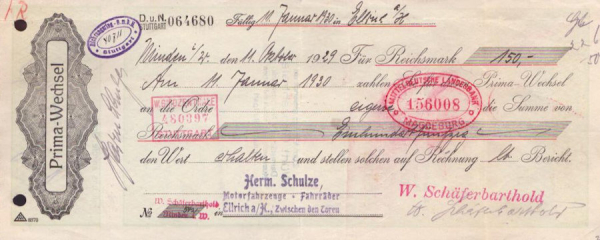 D.u.N.
STUTTGART
064680
Fällig 11. Januar 1930 in Ellrich a/H
Stuttgart
Prima-Wechsel
Minden i/W. den 11. Oktober 1929 Für Reichsmark 150,-
Am 11. Januar 1930 zahlen Prima-Wechsel
an die Ordre eigene die Summe von
480397
MITTELDEUTSCHE LANDESBANK
156008
MAGDEBURG
Reichsmark Einhundertfünfzig
den Wert erhalten und stellen solchen auf Rechnung lt. Bericht.
Herm. Schulze,
Motorfahrzeuge · Fahrräder
Ellrich a/H., Zwischen den Toren
W. Schäferbarthold
Minden i. W.
№
W. Schäferbarthold
W. Schäferbarthold